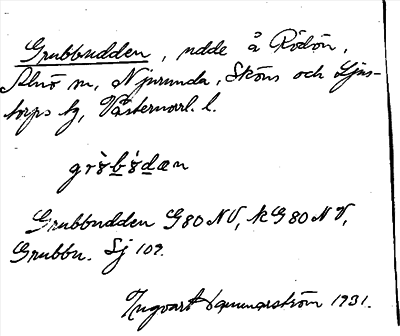 Grubbudden, udde å Rödön,
Alnö sn, Njurunda, Sköns och Ljus-
torps tg, Västernorrl. l.
Grubbudden G80NV, kG80NV,
Grubbu. Sj 109.
Ingvart Hammarström 1931.